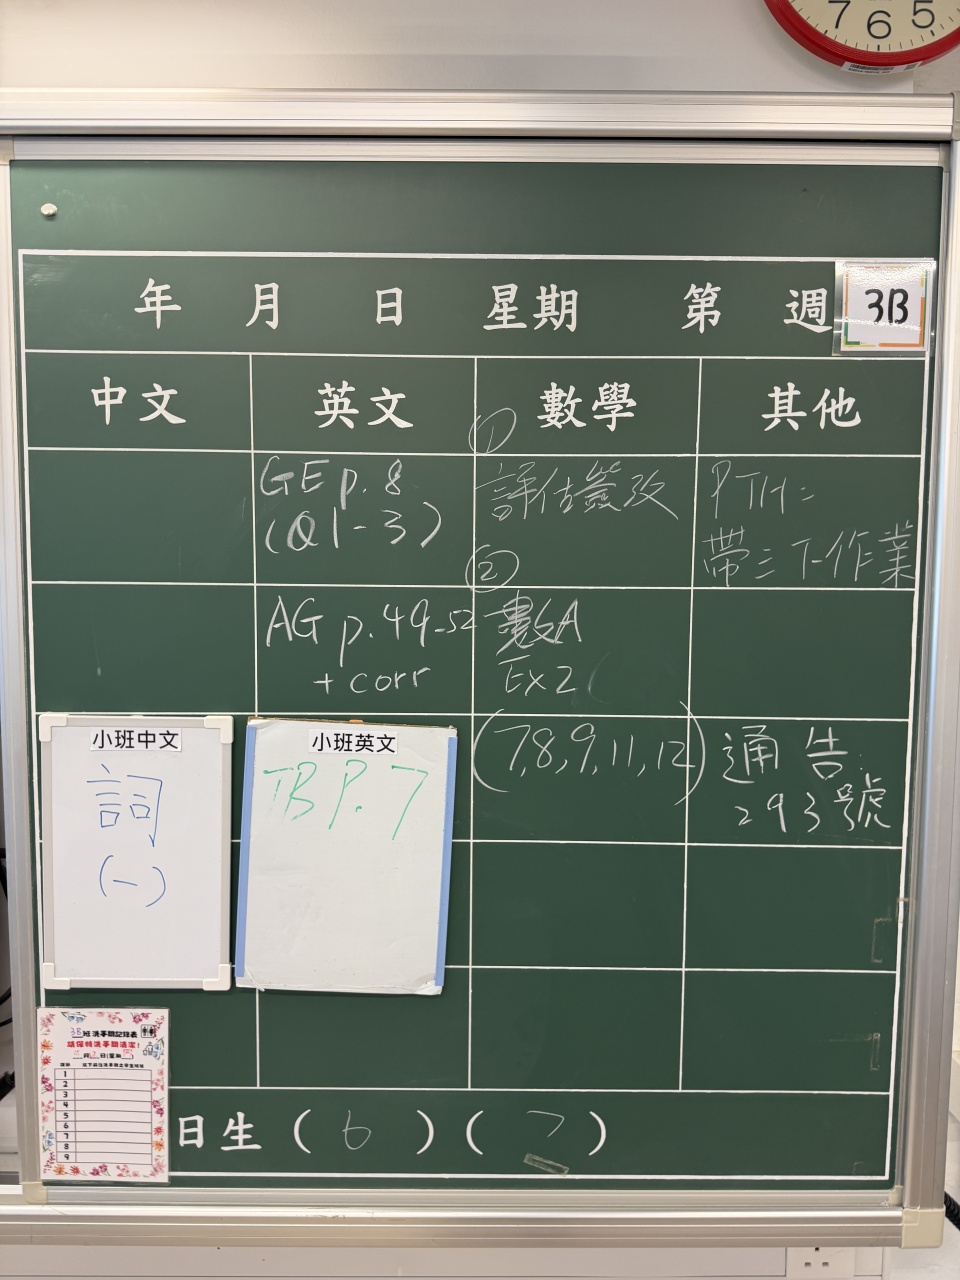 7 6 5
年 月 日 星期 第 週
3B
中文 英文 數學 其他
GE p. 8
(Q1-3)
AG p.49-52
+ corr
①
評估簽改
②
數A
Ex2
(7,8,9,11,12)
PTH:
帶三下作業
通告:
293號
小班中文
詞
(一)
小班英文
TB P. 7
3B班洗手間記錄表
請保持洗手間清潔!
月 日(星期 )
1
2
3
4
5
6
7
8
9
日生 ( 6 ) ( 7 )